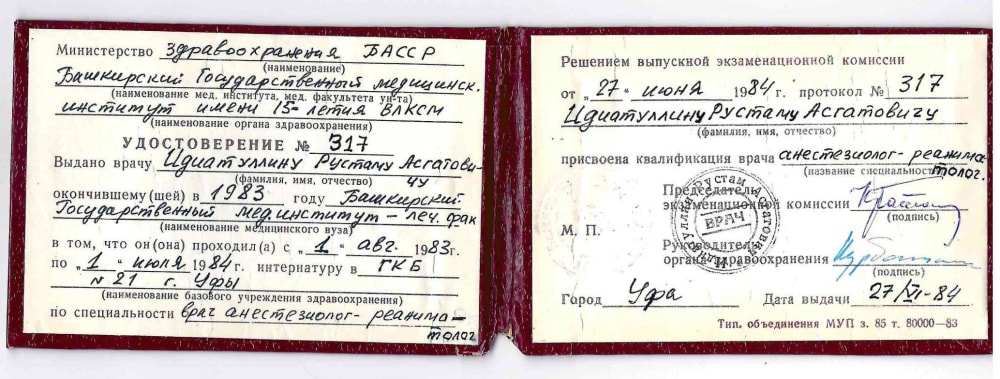 Министерство Здравоохранения БАССР
(наименование)
Башкирский Государственный медицинск.
(наименование мед. института, мед. факультета ун-та)
институт имени 15-летия ВЛКСМ
(наименование органа здравоохранения)
УДОСТОВЕРЕНИЕ № 317
Выдано врачу Идиатуллину Рустаму Асгатови-
(фамилия, имя, отчество) чу
окончившему(шей) в 1983 году Башкирский
Государственный мед.институт - леч. фак
(наименование медицинского вуза)
в том, что он(она) проходил(а) с „1“ авг. 1983г.
по „1“ июля 1984г. интернатуру в ГКБ
№21 г. Уфы
(наименование базового учреждения здравоохранения)
по специальности врач анестезиолог-реанима-
толог
Решением выпускной экзаменационной комиссии
от „27“ июня 1984г. протокол № 317
Идиатуллину Рустаму Асгатовичу
(фамилия, имя, отчество)
присвоена квалификация врача анестезиолог-реанима-
(название специальности) толог.
Председатель
экзаменационной комиссии
(подпись)
М. П.
Идиатуллин Рустам Асгатович
ВРАЧ
Руководитель
органа здравоохранения
(подпись)
Город Уфа Дата выдачи 27/VI-84
Тип. объединения МУП з. 85 т. 80000—83